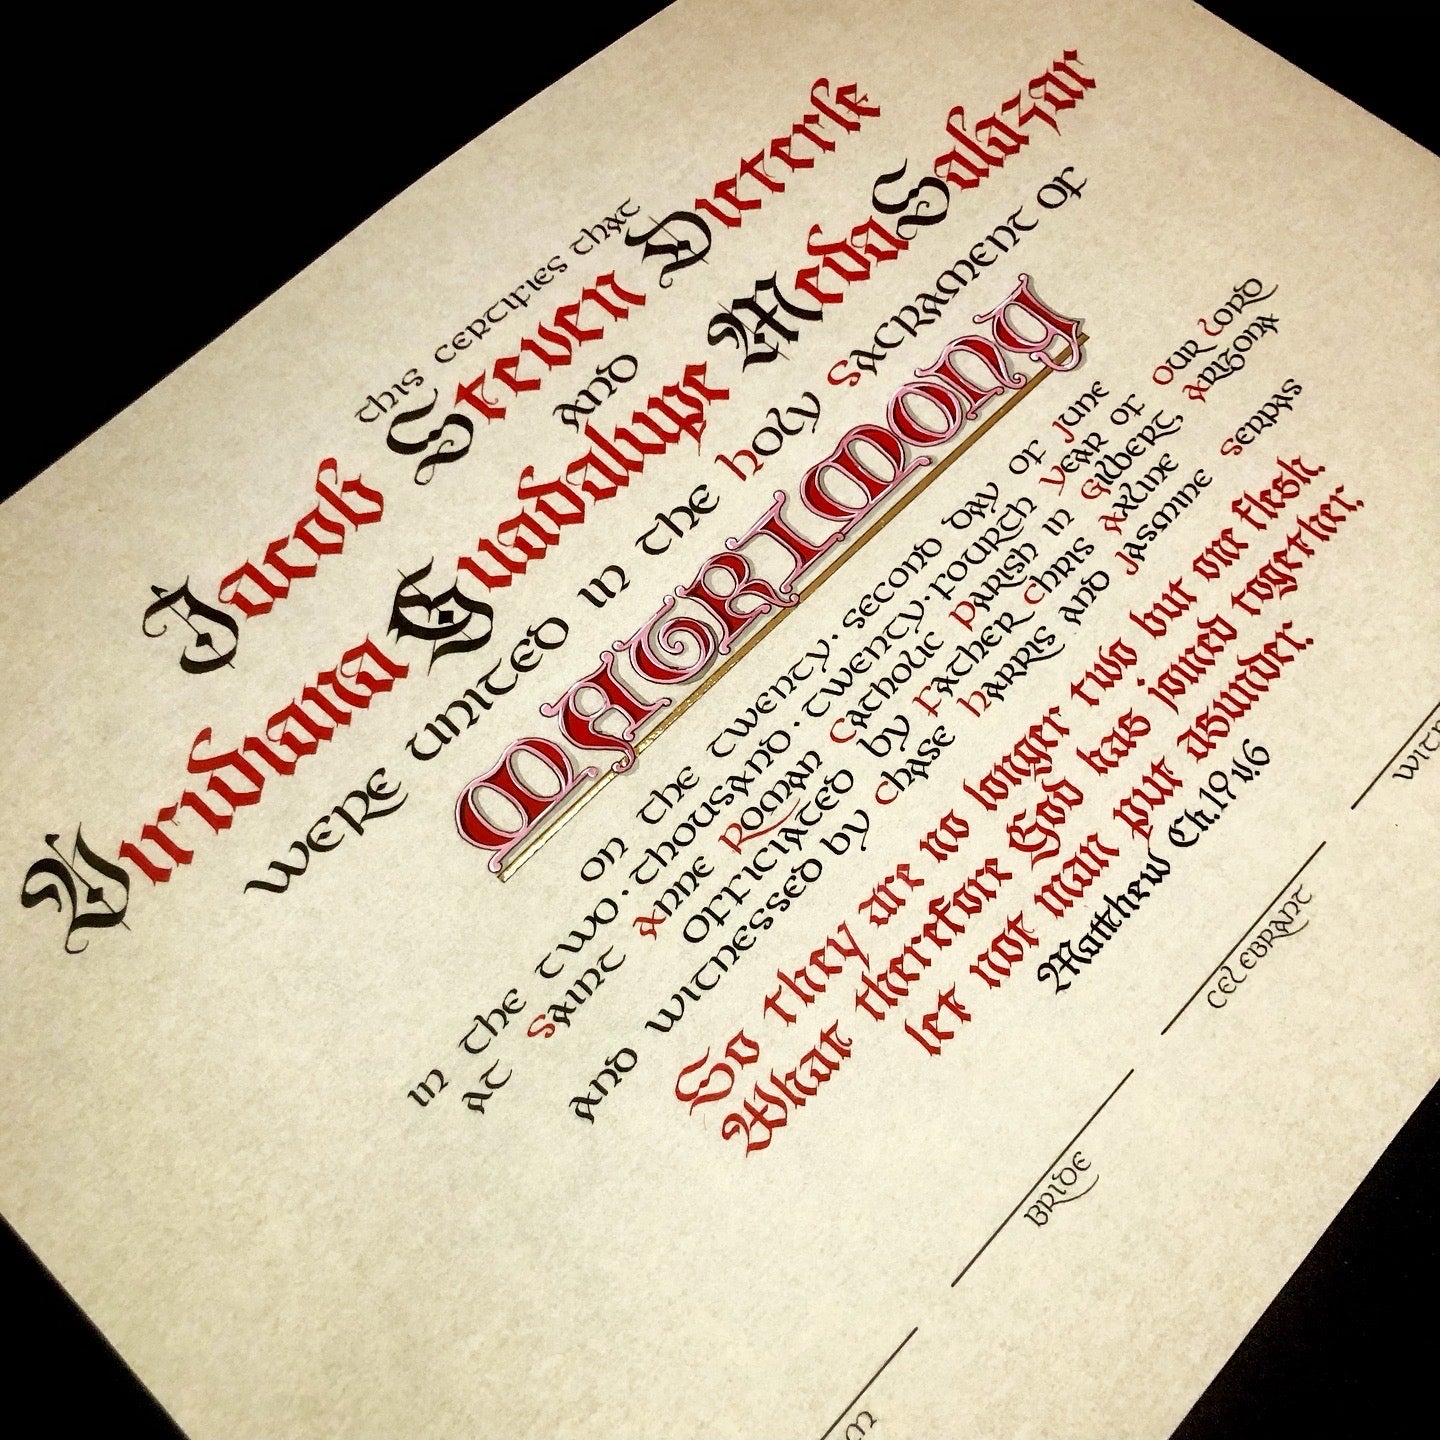 this certifies that
Jacob Steven Dieterle
and
Viridiana Guadalupe Meda Salazar
were united in the holy Sacrament of
MATRIMONY
on the twenty·second day of June
in the two·thousand·twenty·fourth Year of Our Lord
at Saint Anne Roman Catholic Parish in Gilbert, Arizona
officiated by Father Chris Axline
and witnessed by Chase Harris and Jasmine Serpas
So they are no longer two but one flesh.
What therefore God has joined together,
let not man put asunder.
Matthew Ch.19 v.6
Bride
Celebrant